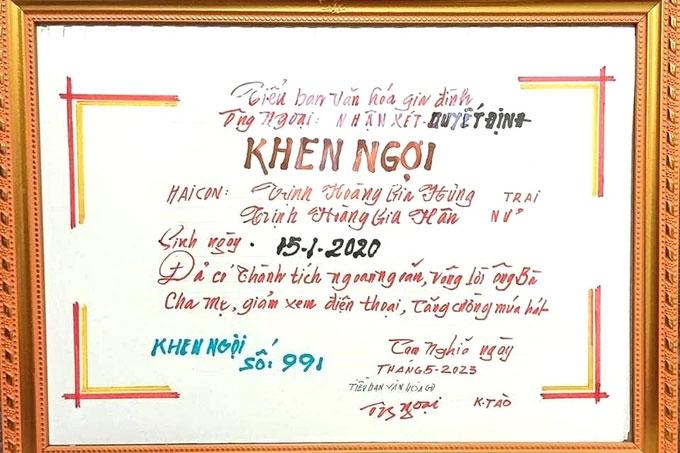 Tiểu ban Văn hóa gia đình
Ông Ngoại: NHẬN XÉT - QUYẾT ĐỊNH
KHEN NGỢI
HAI CON: Trịnh Hoàng Gia Hưng TRAI
Trịnh Hoàng Gia Hân NỮ
Sinh ngày . 15-1-2020
Đả có Thành tích ngoan ngoãn, vâng lời Ông Bà
Cha mẹ, giảm xem điện thoại, Tăng cường múa hát
KHEN NGỢI
SỐ: 991
Tam Nghĩa ngày
THÁNG 5-2023
TIỂU BAN VĂN HÓA GĐ
Ông Ngoại K-TÀO